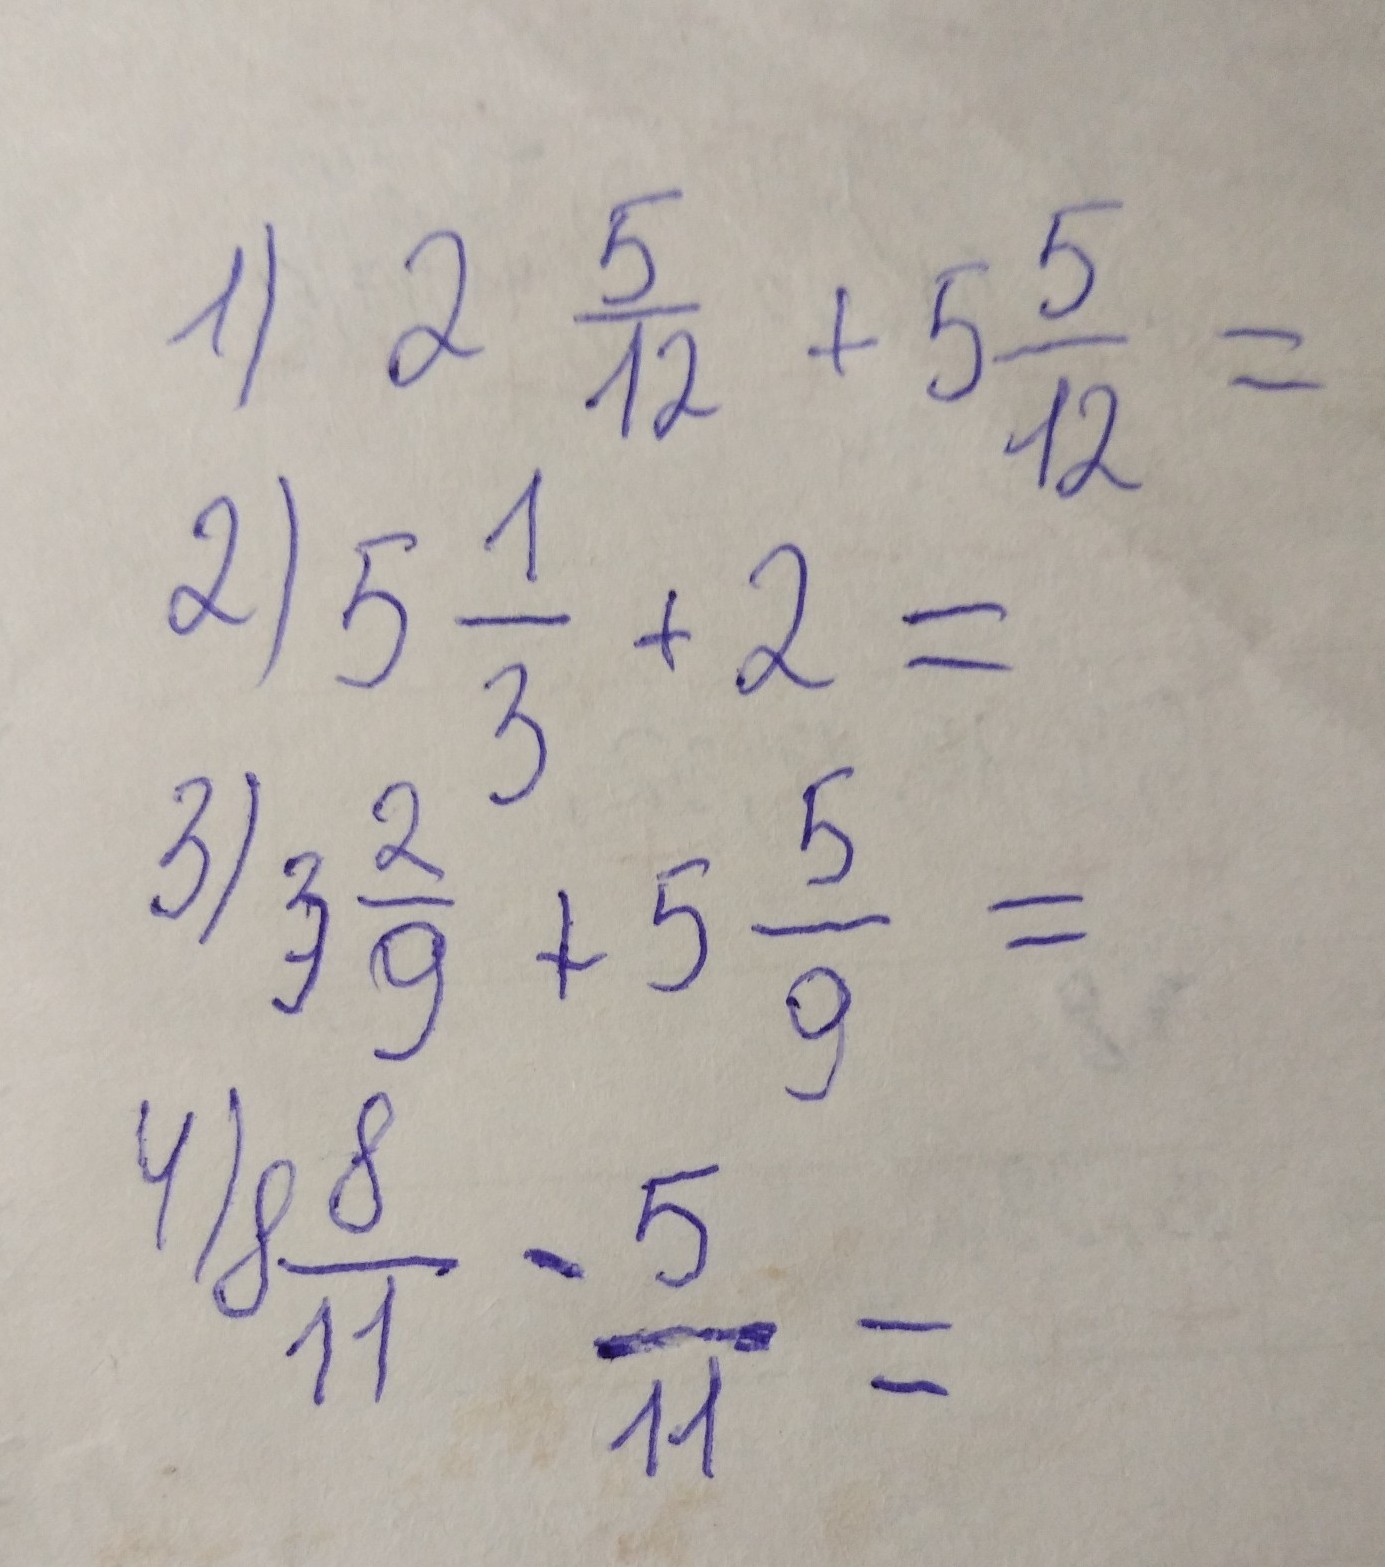 1) 2 5/12 + 5 5/12 =
2) 5 1/3 + 2 =
3) 3 2/9 + 5 5/9 =
4) 8 8/11 - 5/11 =